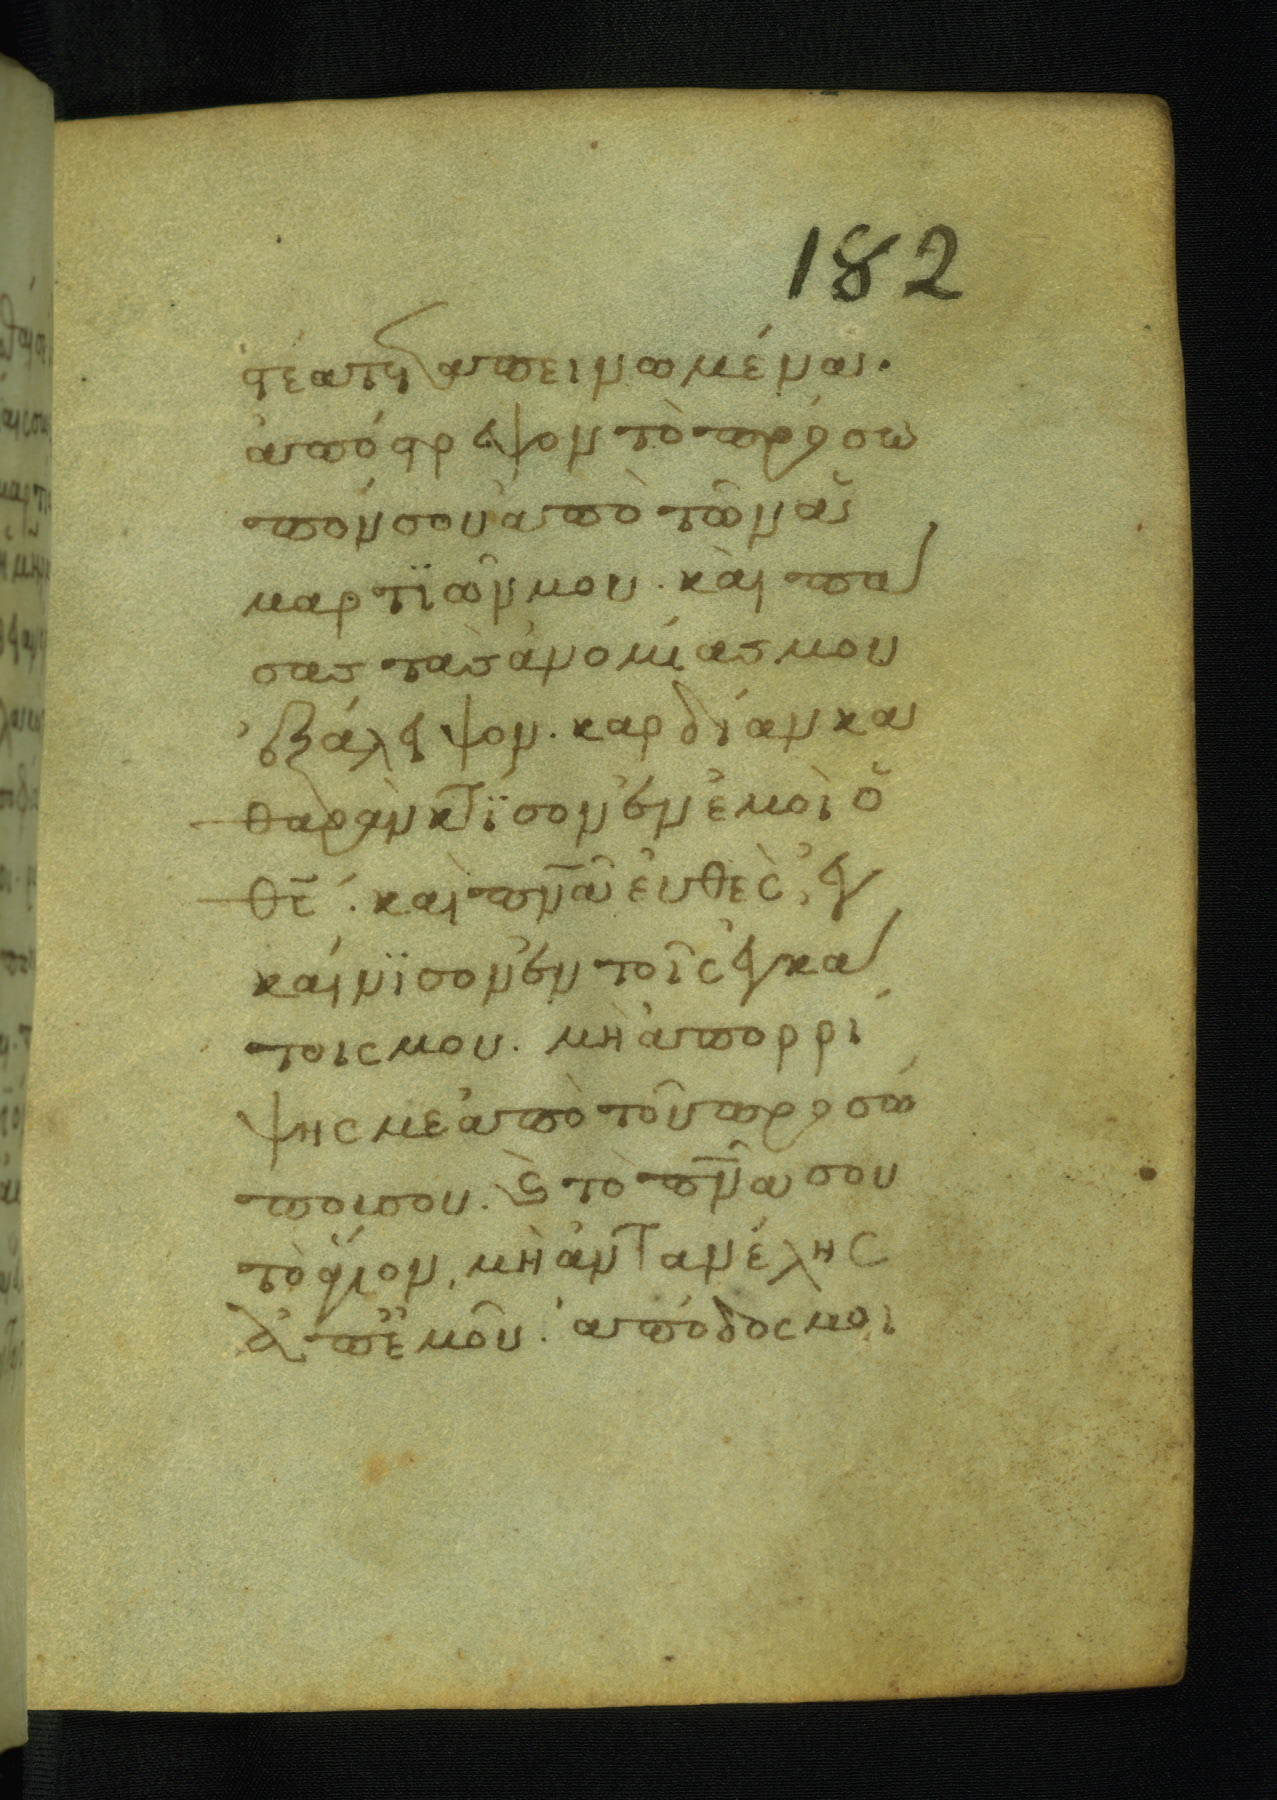 182
στέα τεταπεινωμέναι.
ἀπόστρεψον τὸ πρόσω
πόν σου ἀπὸ τῶν ἁ
μαρτϊῶν μου. καὶ πά
σας τὰς ἀνομίας μου
ἐξάλειψον. καρδίαν κα
θαρὰν κτΐσον ἐν ἐμοὶ ὁ
θ̅ς̅. καὶ πν̅α̅ εὐθὲς, ἐγ
καίνϊσον ἐν τοῖς ἐγκά
τοις μου. μὴ ἀπορρί
ψης με ἀπὸ τοῦ προσώ
που σου. καὶ τὸ πν̅α̅ σου
τὸ ἅγιον, μὴ ἀντανέλης
ἀπ' ἐμοῦ. ἀπόδος μοι